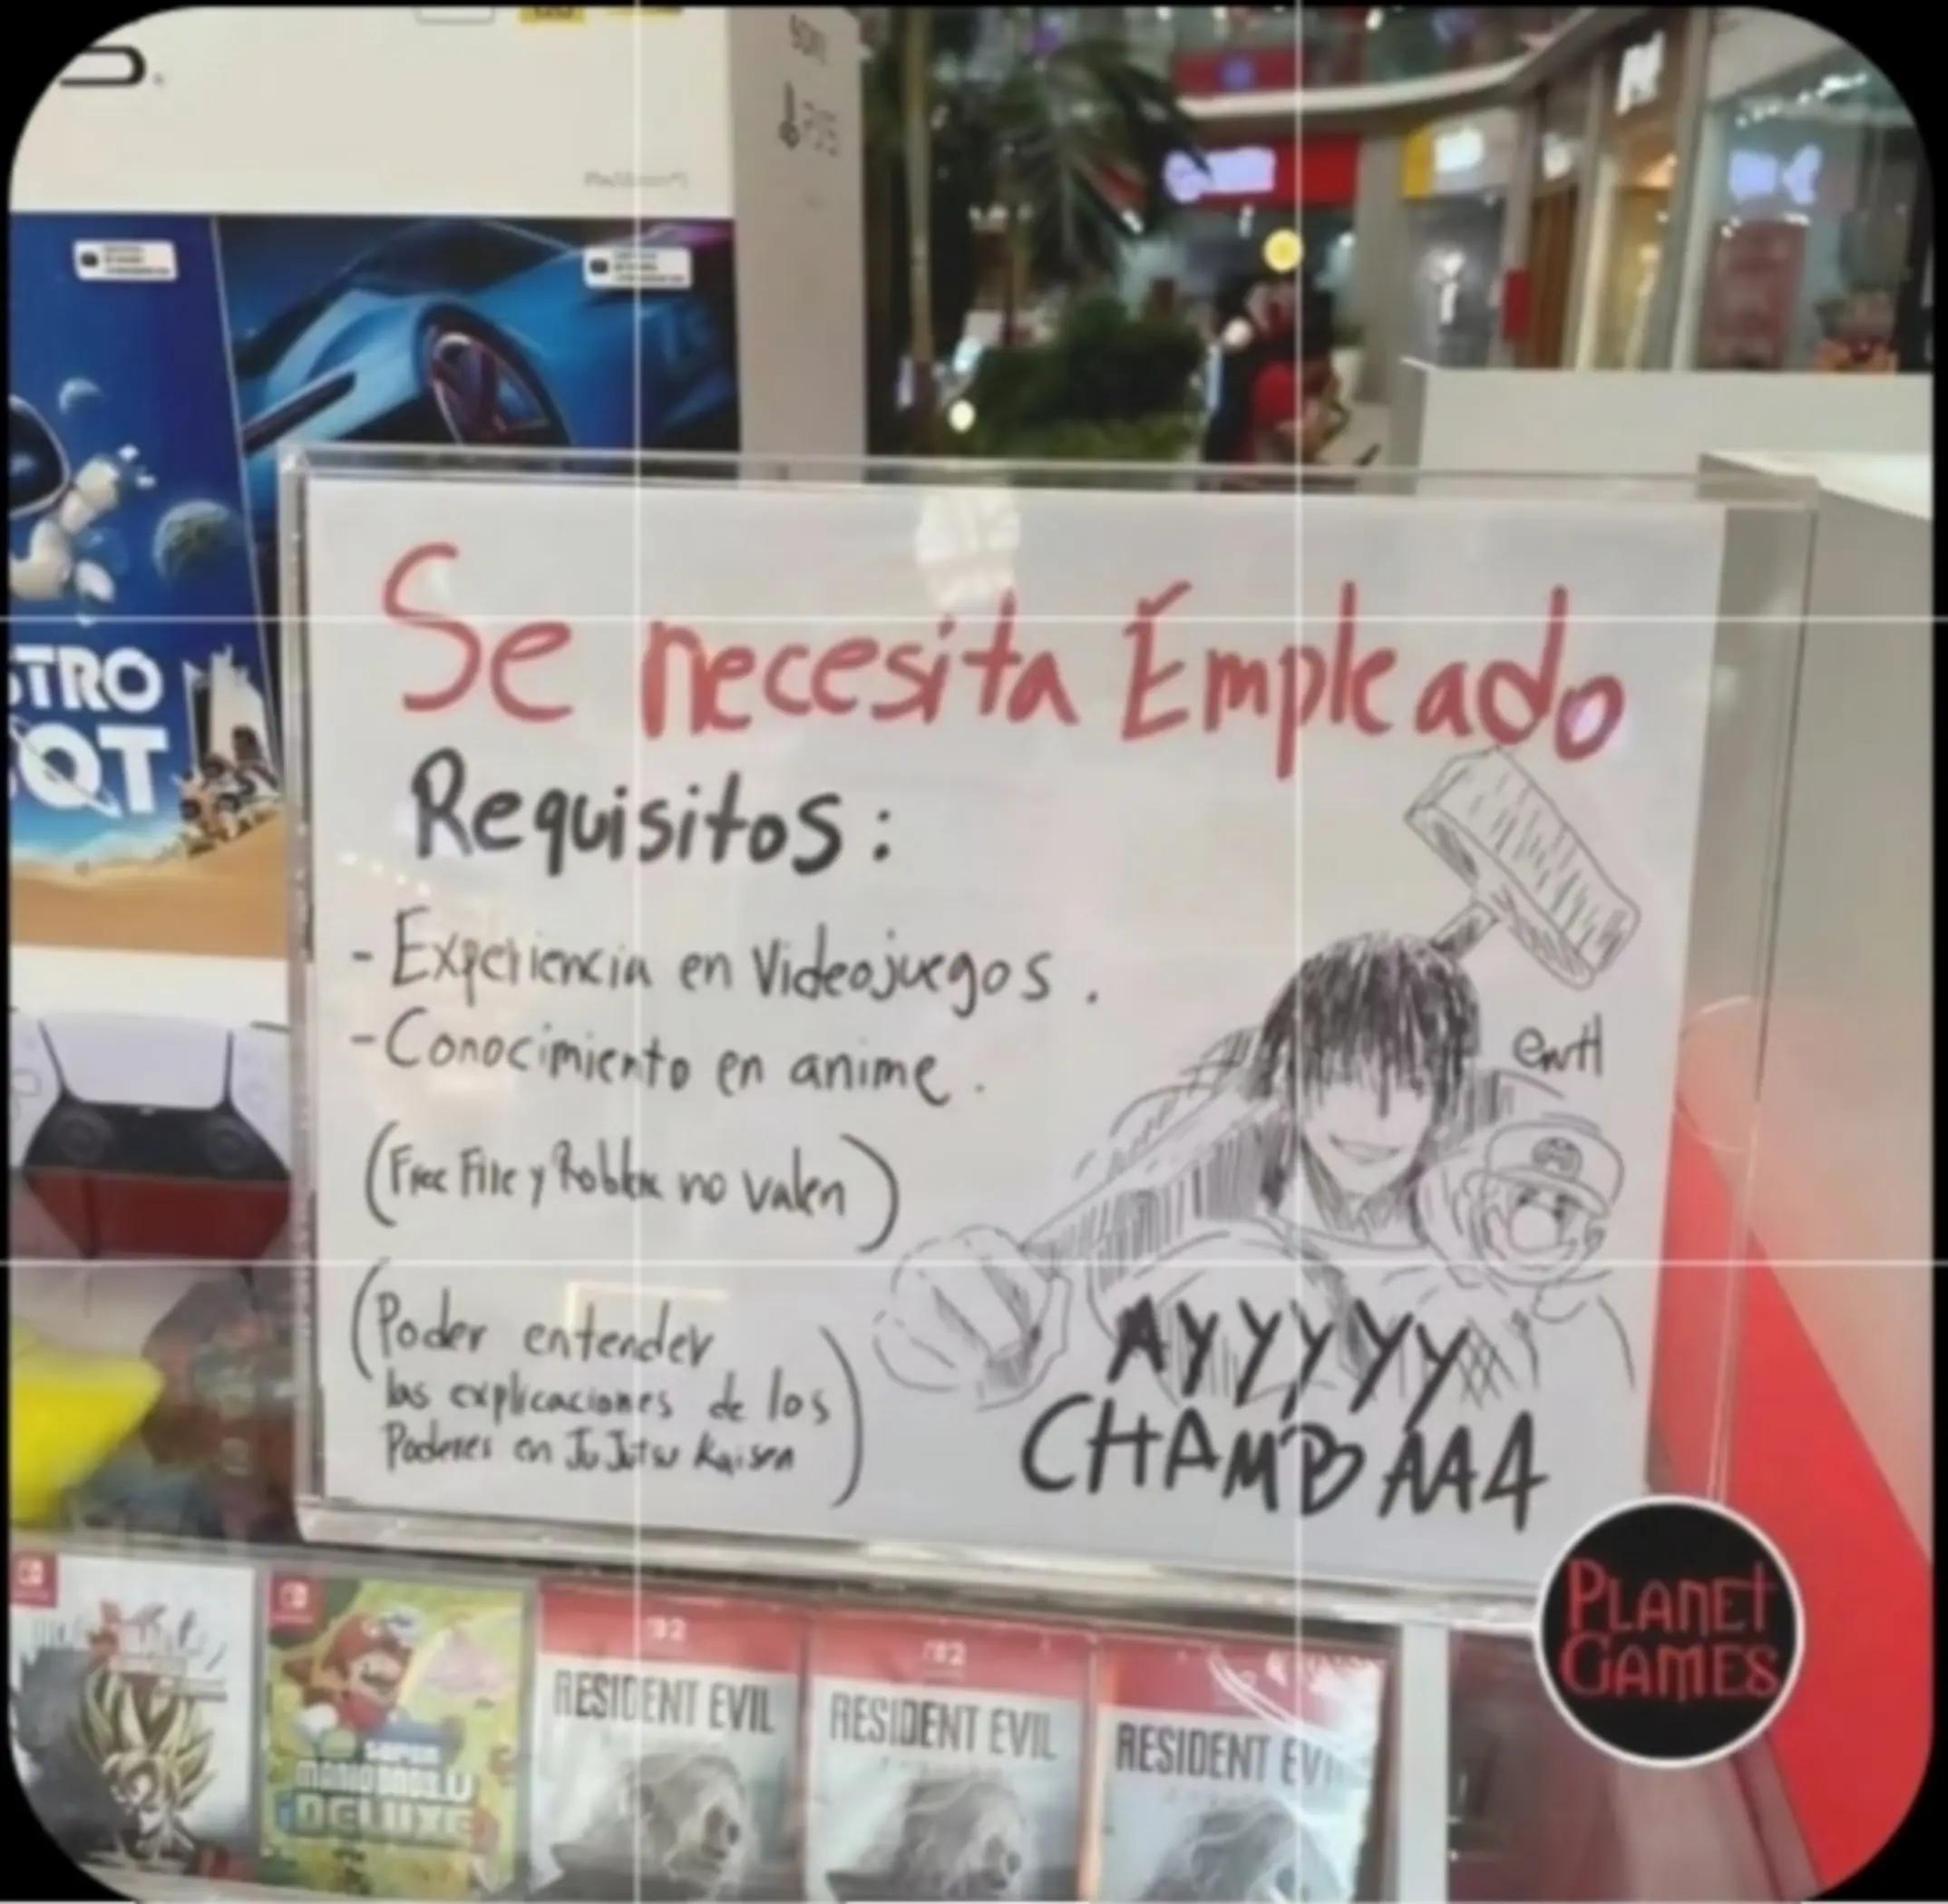 Se necesita Empleado
Requisitos:
- Experiencia en Videojuegos.
- Conocimiento en anime.
(Free Fire y Roblox no valen)
(Poder entender
las explicaciones de los
Poderes en JuJutsu Kaisen)
AYYYYY
CHAMBAAA
STRO
OT
PLANET
GAMES
SUPER
MARIO BROS. U
DELUXE
RESIDENT EVIL
RESIDENT EVIL
RESIDENT EVI